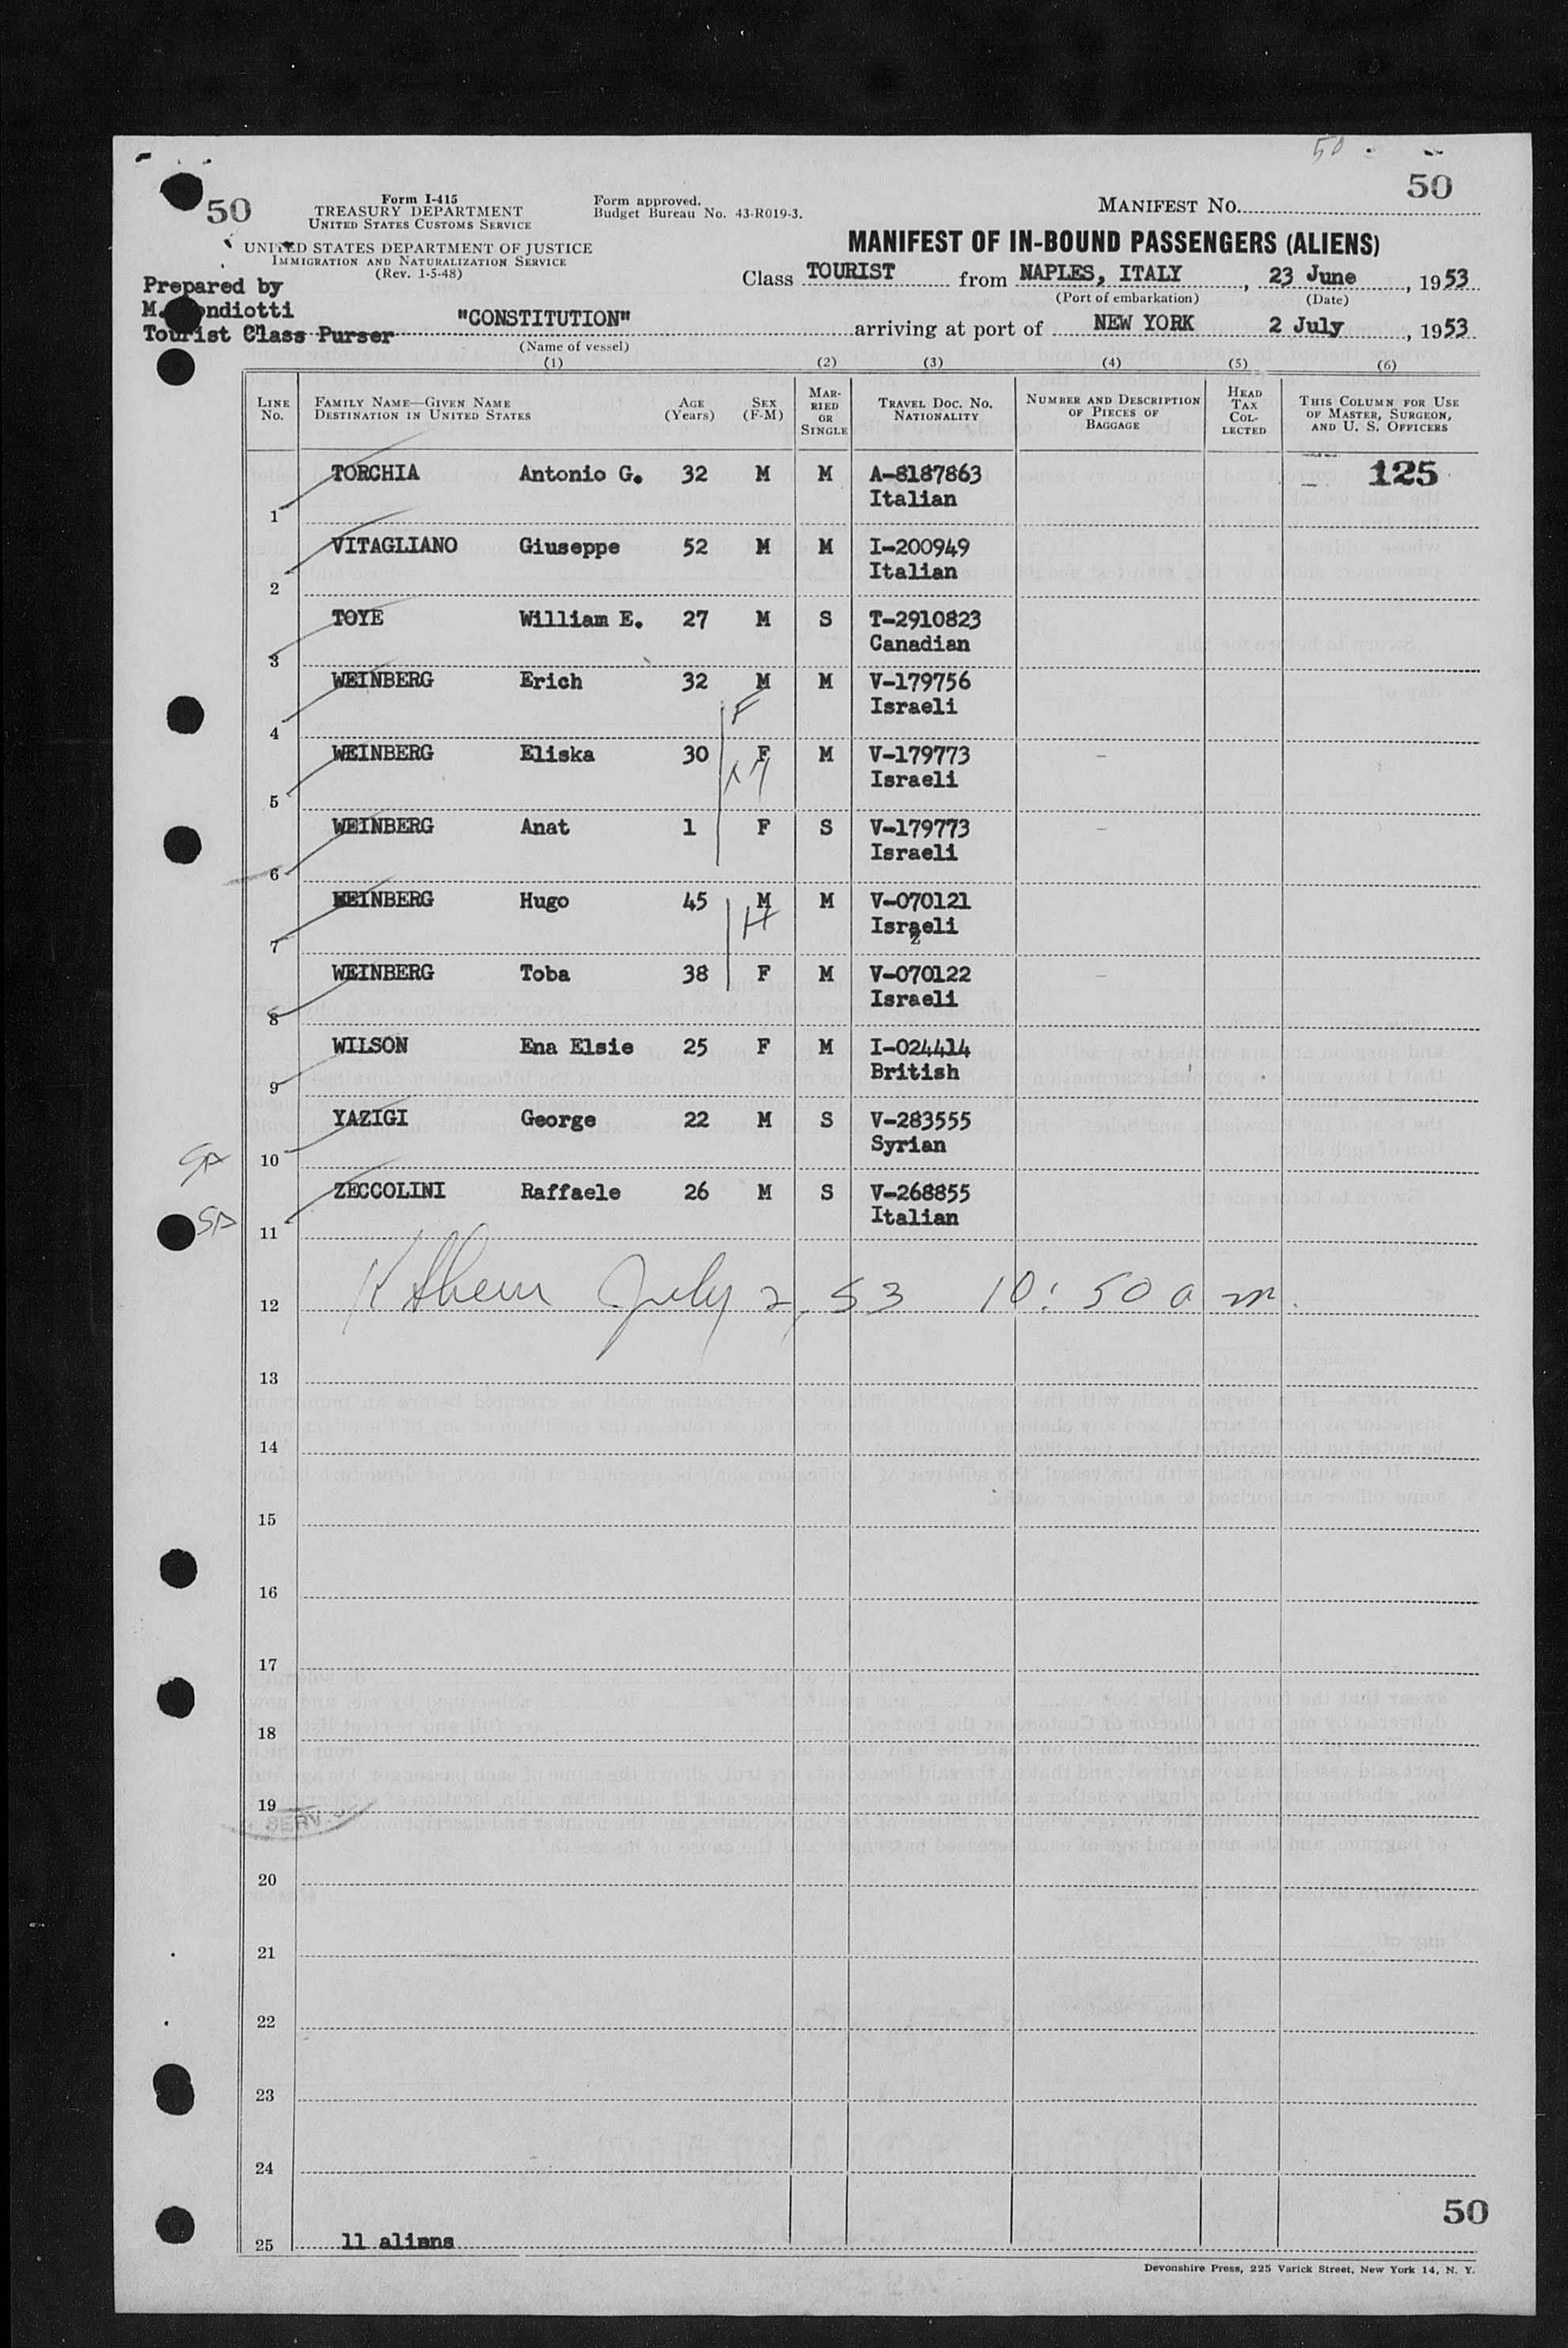 50
50
50
Form I-415
TREASURY DEPARTMENT
UNITED STATES CUSTOMS SERVICE
Form approved.
Budget Bureau No. 43-R019-3.
MANIFEST NO.
UNITED STATES DEPARTMENT OF JUSTICE
IMMIGRATION AND NATURALIZATION SERVICE
(Rev. 1-5-48)
MANIFEST OF IN-BOUND PASSENGERS (ALIENS)
Class TOURIST from NAPLES, ITALY, 23 June, 1953
(Port of embarkation) (Date)
Prepared by
M. ndiotti
Tourist Class Purser
"CONSTITUTION" arriving at port of NEW YORK 2 July, 1953
(Name of vessel)
(1) (2) (3) (4) (5) (6)
LINE NO. FAMILY NAME—GIVEN NAME DESTINATION IN UNITED STATES AGE (YEARS) SEX (F-M) MARRIED OR SINGLE TRAVEL DOC. NO. NATIONALITY NUMBER AND DESCRIPTION OF PIECES OF BAGGAGE HEAD TAX COLLECTED THIS COLUMN FOR USE OF MASTER, SURGEON, AND U. S. OFFICERS
TORCHIA Antonio G. 32 M M A-8187863 125
1 Italian
VITAGLIANO Giuseppe 52 M M I-200949
2 Italian
TOYE William E. 27 M S T-2910823
3 Canadian
WEINBERG Erich 32 M M V-179756
4 F Israeli
WEINBERG Eliska 30 F M V-179773
5 Israeli
WEINBERG Anat 1 F S V-179773
6 Israeli
WEINBERG Hugo 45 M M V-070121
7 H Israeli
2
WEINBERG Toba 38 F M V-070122
8 Israeli
WILSON Ena Elsie 25 F M I-024414
9 British
YAZIGI George 22 M S V-283555
10 Syrian
ZECCOLINI Raffaele 26 M S V-268855
11 Italian
12 July 2, 53 10:50 a m.
13
14
15
16
17
18
19
SERV
20
21
22
23
24
50
25 11 aliens
Devonshire Press, 225 Varick Street, New York 14, N. Y.